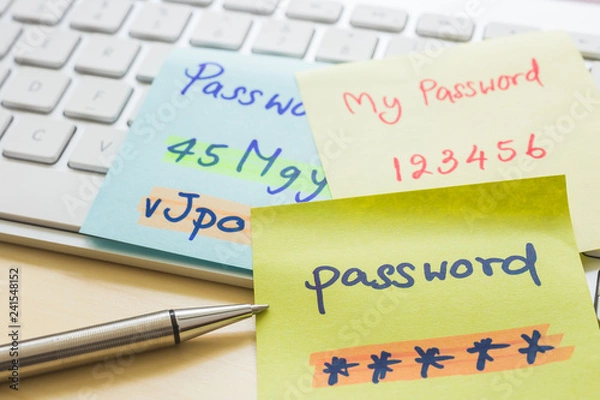 Password
45Mgy
vJpo
My Password
123456
password
*****
Adobe Stock | #241548152